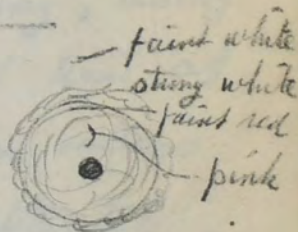 faint white
strong white
faint red
pink